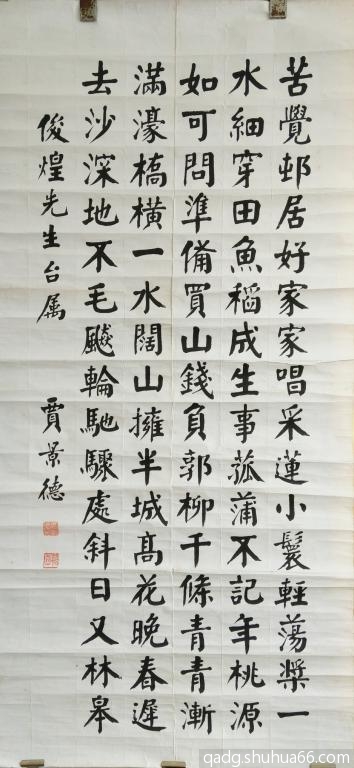 苦覺邨居好家家唱采蓮小鬟輕蕩槳一
水細穿田魚稻成生事菰蒲不記年桃源
如可問準備買山錢負郭柳千條青青漸
滿濠橋橫一水闊山擁半城高花晚春遲
去沙深地不毛飈輪馳驟處斜日又林皋
俊煌先生台属 賈景德
qadg.shuhua66.com